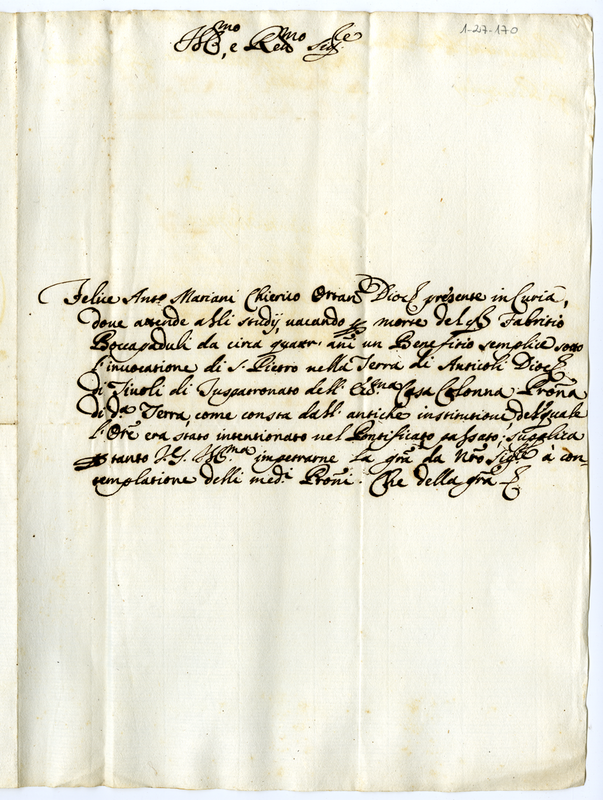 1-27-170
Ill.mo, e Reu.mo Sig.re
Felice Ant.o Mariani Chierico Ortan Dioc. presente in Curia,
doue attende alli studij, uacando per morte del q. Fabritio
Boccapaduli da circa quattr' añi un Beneficio semplice sotto
l'inuocatione di S. Pietro nella Terra di Anticoli Dioc.
di Tiuoli di Iuspatronato dell' Ecc.ma Casa Colonna Prõna
di d.a Terra, come consta dall' antiche institutione, del quale
l'Ore era stato intentionato nel Pontificato passato; supplica
per tanto V.S. Ill.ma impetrarne la gra da Nro Sig.re à con-
templatione delli med.i Proni. Che della gra